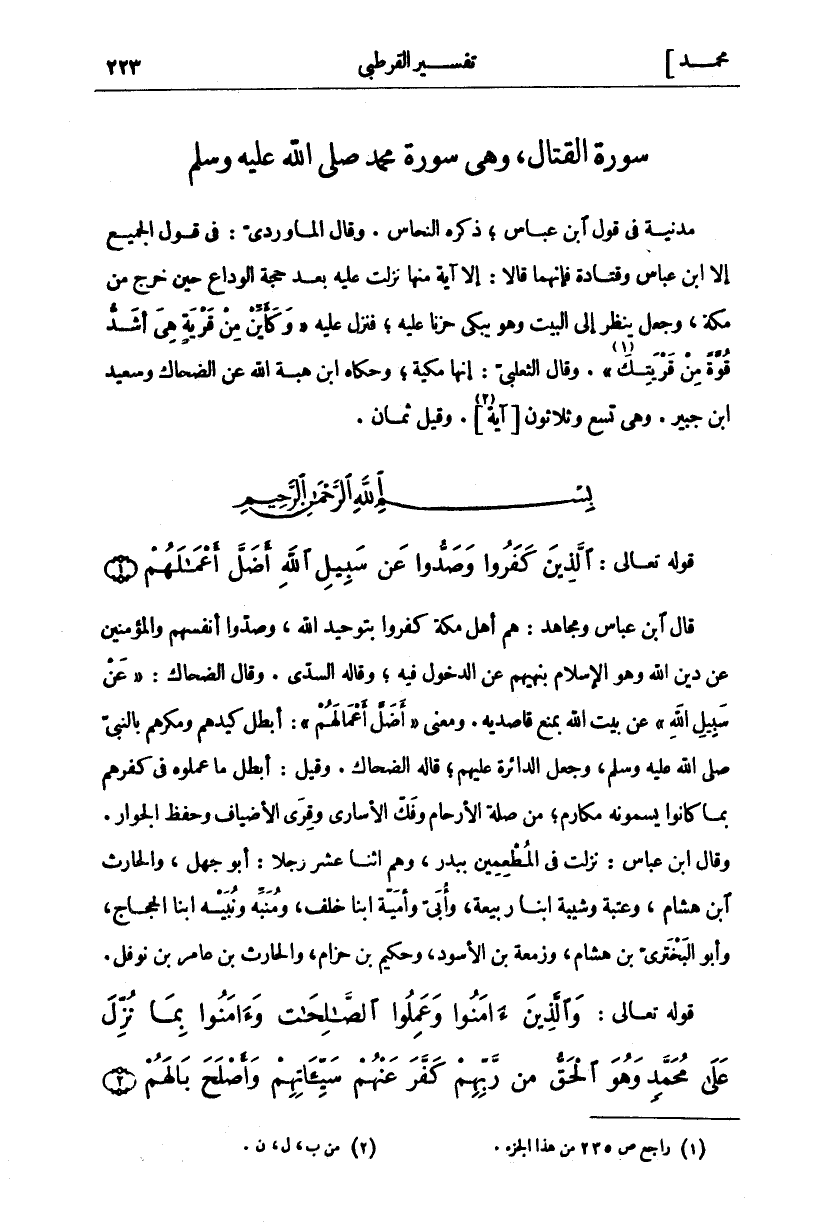 محمد]    تفسير القرطبى    ٢٢٣
سورة القتال، وهى سورة محمد صلى الله عليه وسلم
مدنية فى قول آبن عباس ؛ ذكره النحاس . وقال الماوردىّ : فى قول الجميع
إلا ابن عباس وقتادة فإنهما قالا : إلا آية منها نزلت عليه بعد حجة الوداع حين خرج من
مكة ، وجعل ينظر إلى البيت وهو يبكى حزنا عليه ؛ فنزل عليه « وَكَأَيِّنْ مِنْ قَرْيَةٍ هِىَ أَشَدُّ
قُوَّةً مِنْ قَرْيَتِكَ(١) » . وقال الثعلبىّ : إنها مكية ؛ وحكاه ابن هبة الله عن الضحاك وسعيد
ابن جبير . وهى تسع وثلاثون [ آية(٢) ] . وقيل ثمان .
بِسْمِ ٱللَّهِ ٱلرَّحْمَٰنِ ٱلرَّحِيمِ
قوله تعالى : ٱلَّذِينَ كَفَرُوا وَصَدُّوا عَن سَبِيلِ ٱللَّهِ أَضَلَّ أَعْمَٰلَهُمْ ﴿١﴾
قال آبن عباس ومجاهد : هم أهل مكة كفروا بتوحيد الله ، وصدّوا أنفسهم والمؤمنين
عن دين الله وهو الإسلام بنهيهم عن الدخول فيه ؛ وقاله السدّى . وقال الضحاك : « عَنْ
سَبِيلِ اللهِ » عن بيت الله بمنع قاصديه . ومعنى « أَضَلَّ أَعْمَالَهُمْ » : أبطل كيدهم ومكرهم بالنبىّ
صلى الله عليه وسلم، وجعل الدائرة عليهم؛ قاله الضحاك . وقيل : أبطل ما عملوه فى كفرهم
بما كانوا يسمونه مكارم؛ من صلة الأرحام وفَكّ الأسارى وقِرَى الأضياف وحفظ الجوار .
وقال ابن عباس : نزلت فى المُطْعِمِين ببدر ، وهم اثنا عشر رجلا : أبو جهل ، والحارث
آبن هشام ، وعتبة وشيبة ابنا ربيعة، وأُبَىّ وأميّة ابنا خلف، ومُنَبِّه ونُبَيْه ابنا الحجاج،
وأبو البَخْتَرىّ بن هشام، وزمعة بن الأسود، وحكيم بن حزام، والحارث بن عامر بن نوفل.
قوله تعالى : وَٱلَّذِينَ ءَامَنُوا وَعَمِلُوا ٱلصَّٰلِحَٰتِ وَءَامَنُوا بِمَا نُزِّلَ
عَلَىٰ مُحَمَّدٍ وَهُوَ ٱلْحَقُّ مِن رَّبِّهِمْ كَفَّرَ عَنْهُمْ سَيِّئَاتِهِمْ وَأَصْلَحَ بَالَهُمْ ﴿٢﴾
(١) راجع ص ٢٣٥ من هذا الجزء .    (٢) من ب، ل، ن .